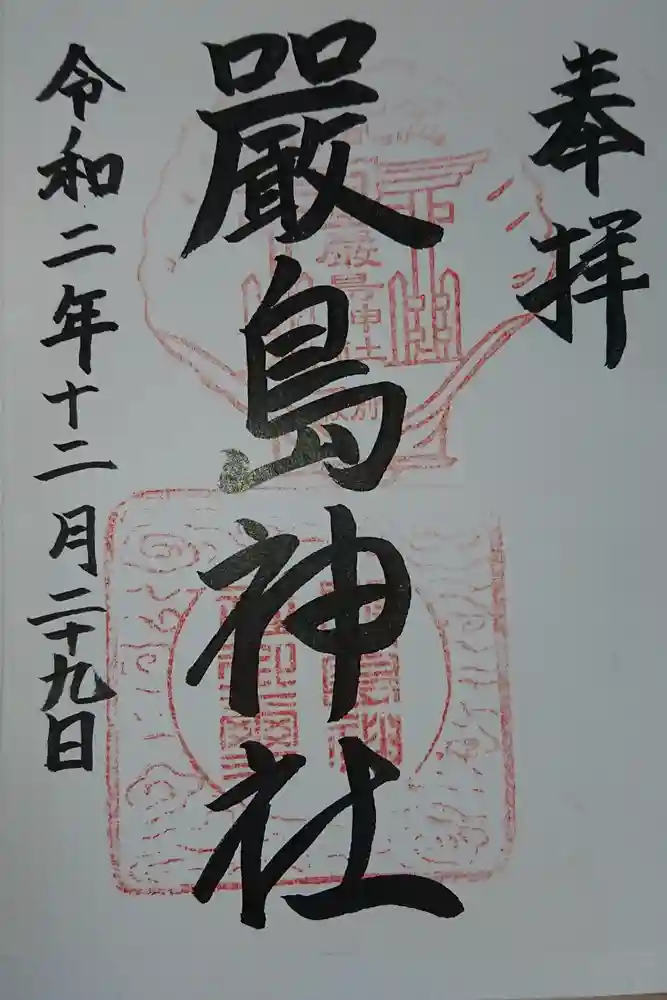 奉拝
嚴島神社
嚴島神社
令和二年十二月二十九日